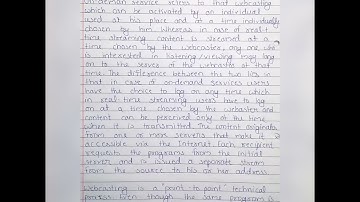 On-demand service refers to that webcasting
which can be activated by an individual
used at his place and at a time individually
chosen by him whereas in case of real-
time streaming content is streamed at a
time chosen by the webcaster, any one who
is interested in listening/viewing may log
on to the server of the webcaster at that
time. The difference between the two lies in
that in case of on-demand services users
have the choice to log on any time which
in real-time streaming users have to log
on at a time chosen by the webcasters and
content can be perceived only at the time
when it is transmitted. The content originates
from one or more servers that make it
accessible via the Internet. Each recipient
requests the programs from the initial
server and is issued a separate stream
from the source to his or her address.
Webcasting is a "point-to-point" technical
process. Even though the same program is